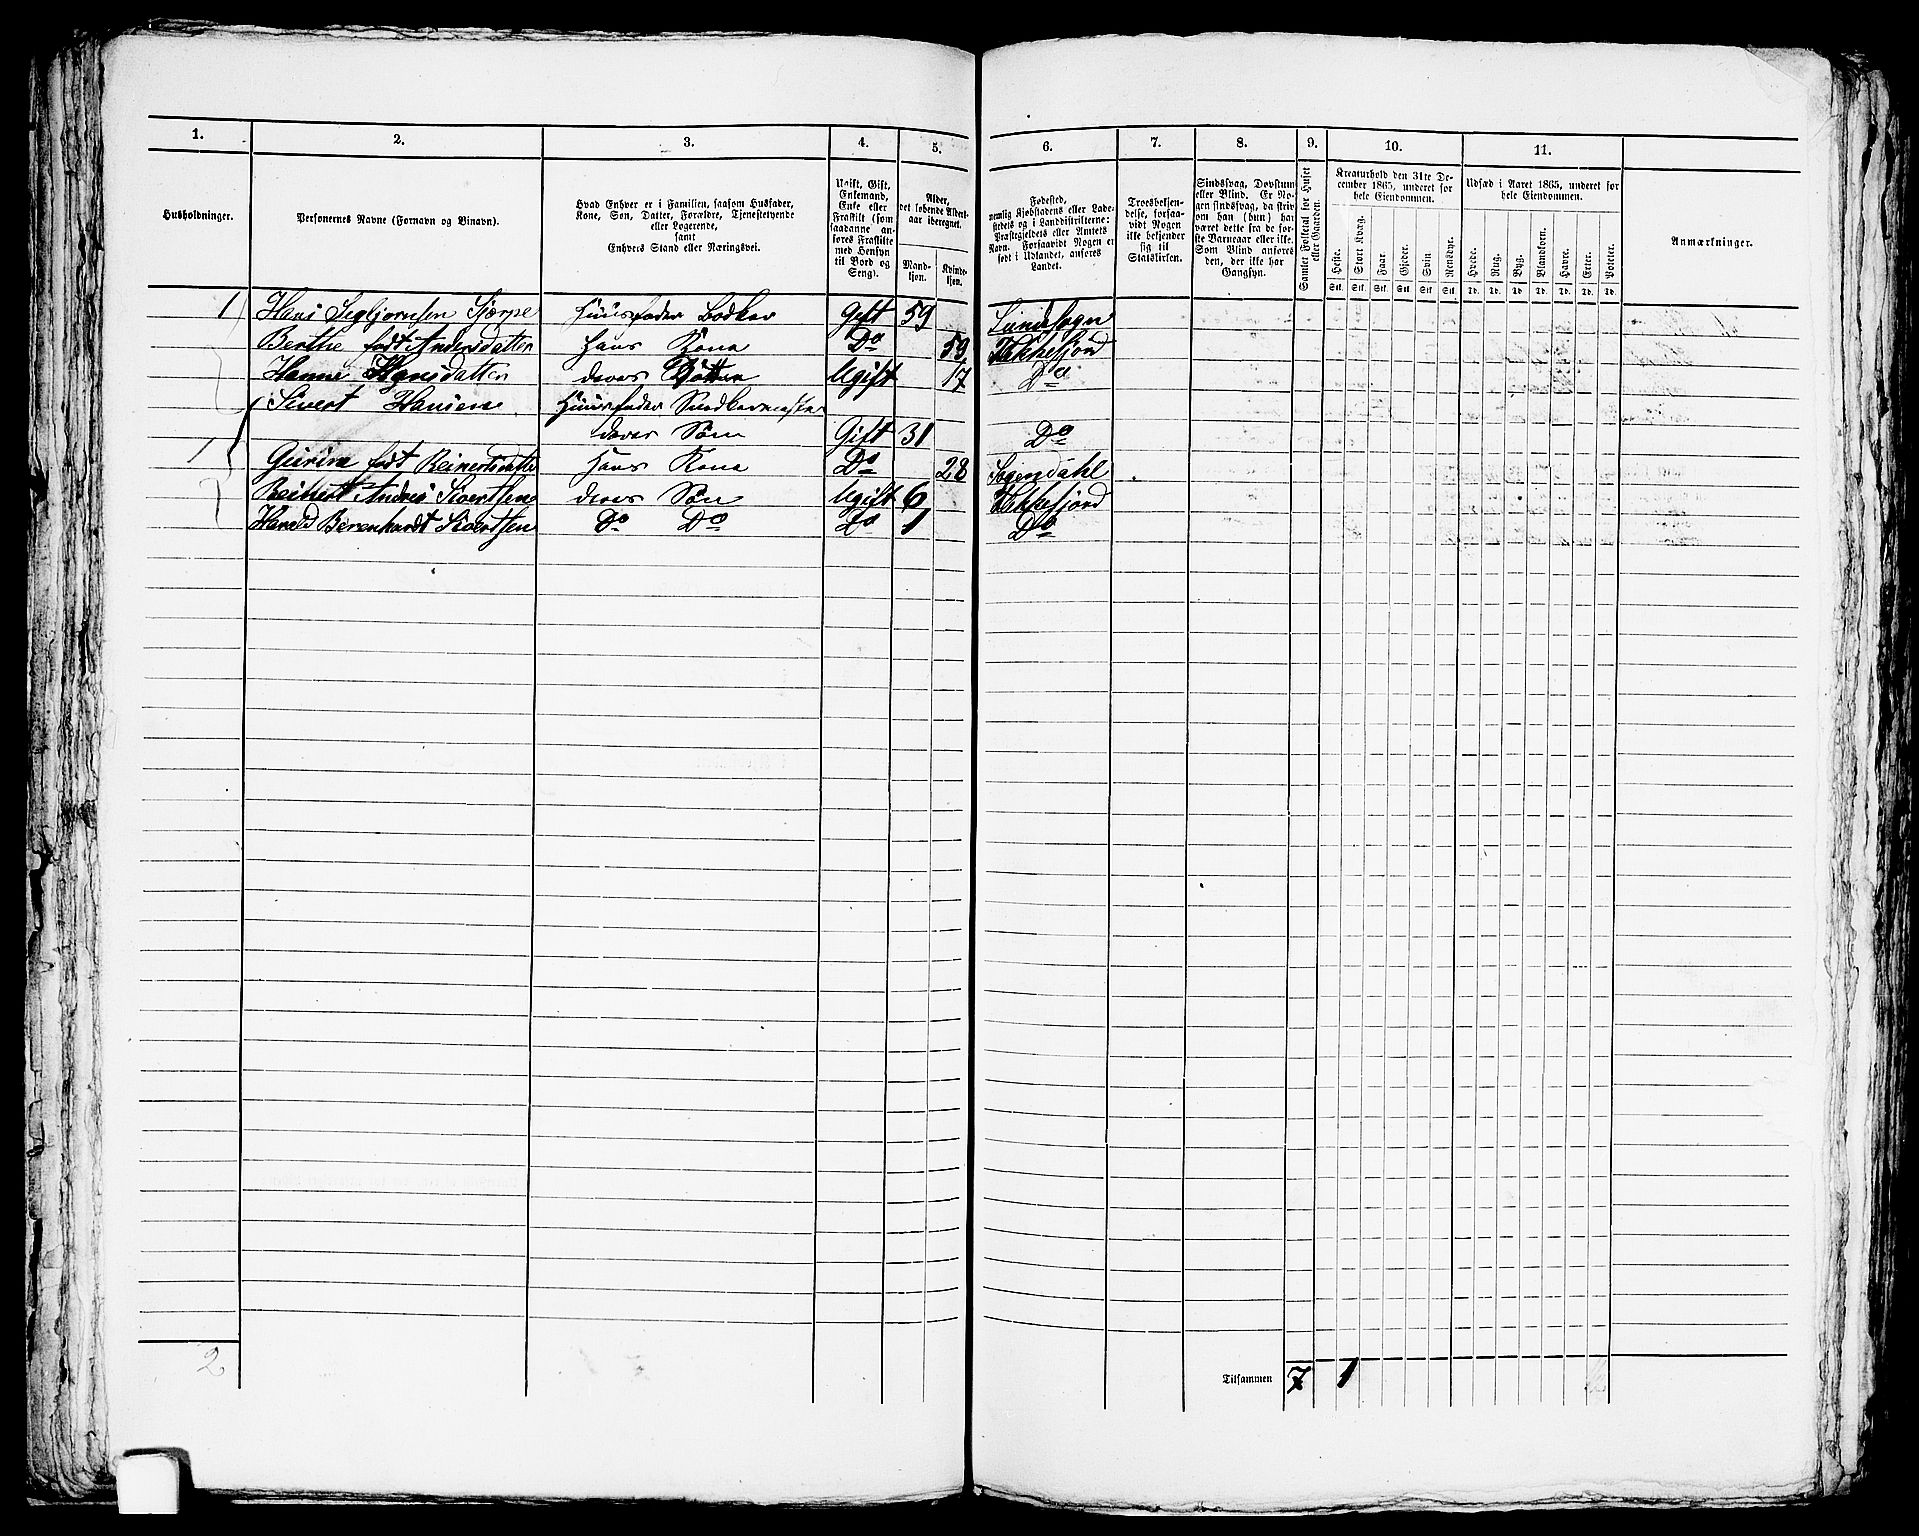 1. 2. 3. 4. 5. 6. 7. 8. 9. 10. 11.
Husholdninger.
Personernes Navne (Fornavn og Tilnavn).
Hvad Enhver er i Familien, saasom Husfader,
Kone, Søn, Datter, Forældre, Tjenestetyende
eller Logerende,
samt
Enhvers Stand eller Næringsvei.
Ugift, Gift,
Enkemand,
Enke eller
Fraskilt (som
saadanne anføres
Fraskilte
med Hensyn
til Bord og
Seng).
Alder,
det løbende Aldersaar
iberegnet.
Mandkjøn.
Kvindekjøn.
Fødested,
nemlig Kjøbstadens eller Ladestedets
og i Landdistrikterne:
Præstegjeldets eller Amtets
Navn. Forsaavidt Nogen er
født i Udlandet, anføres
Landet.
Troesbekjendelse,
forsaavidt
Nogen
ikke bekjender
sig til
Statskirken.
Sindssvag, Døvstum
eller Blind. Er Nogen
sindssvag, da skrives
om han (hun) har
været dette fra de første
Barneaar eller ikke.
Som Blind anføres
den, der ikke har
Gangsyn.
Samlet Folketal for Huset
eller Gaarden.
Kreaturhold den 31te December
1865, underet for
hele Eiendommen.
Heste. Stort Kvæg. Faar. Gjeder. Svin Rensdyr.
Udsæd i Aaret 1865, underet for
hele Eiendommen.
Hvede. Rug. Byg. Blandkorn. Havre. Erter. Poteter.
Stk. Stk. Stk. Stk. Stk. Stk. Td. Td. Td. Td. Td. Td. Td.
Anmærkninger.
1 Hans Segbjørnsen Hjørpe Huusfader Bødker Gift 59 Lundsogn
Berthe født Andersdatter Hans Kone Do 59 Flekkefjord
Hanne Hansdatter deres Datter Ugift 17 Do
Sivert Hansen Huusfader
deres Søn Gift 31 Do
1 Gurine født Reinertsdatter Hans Kone Do 28 Sogendahl
Reinert Andreas Sivertsen deres Søn Ugift 6 Flekkefjord
Harald Berenhardt Sivertsen Do Do Do 1 Do
2 Tilsammen 7 1